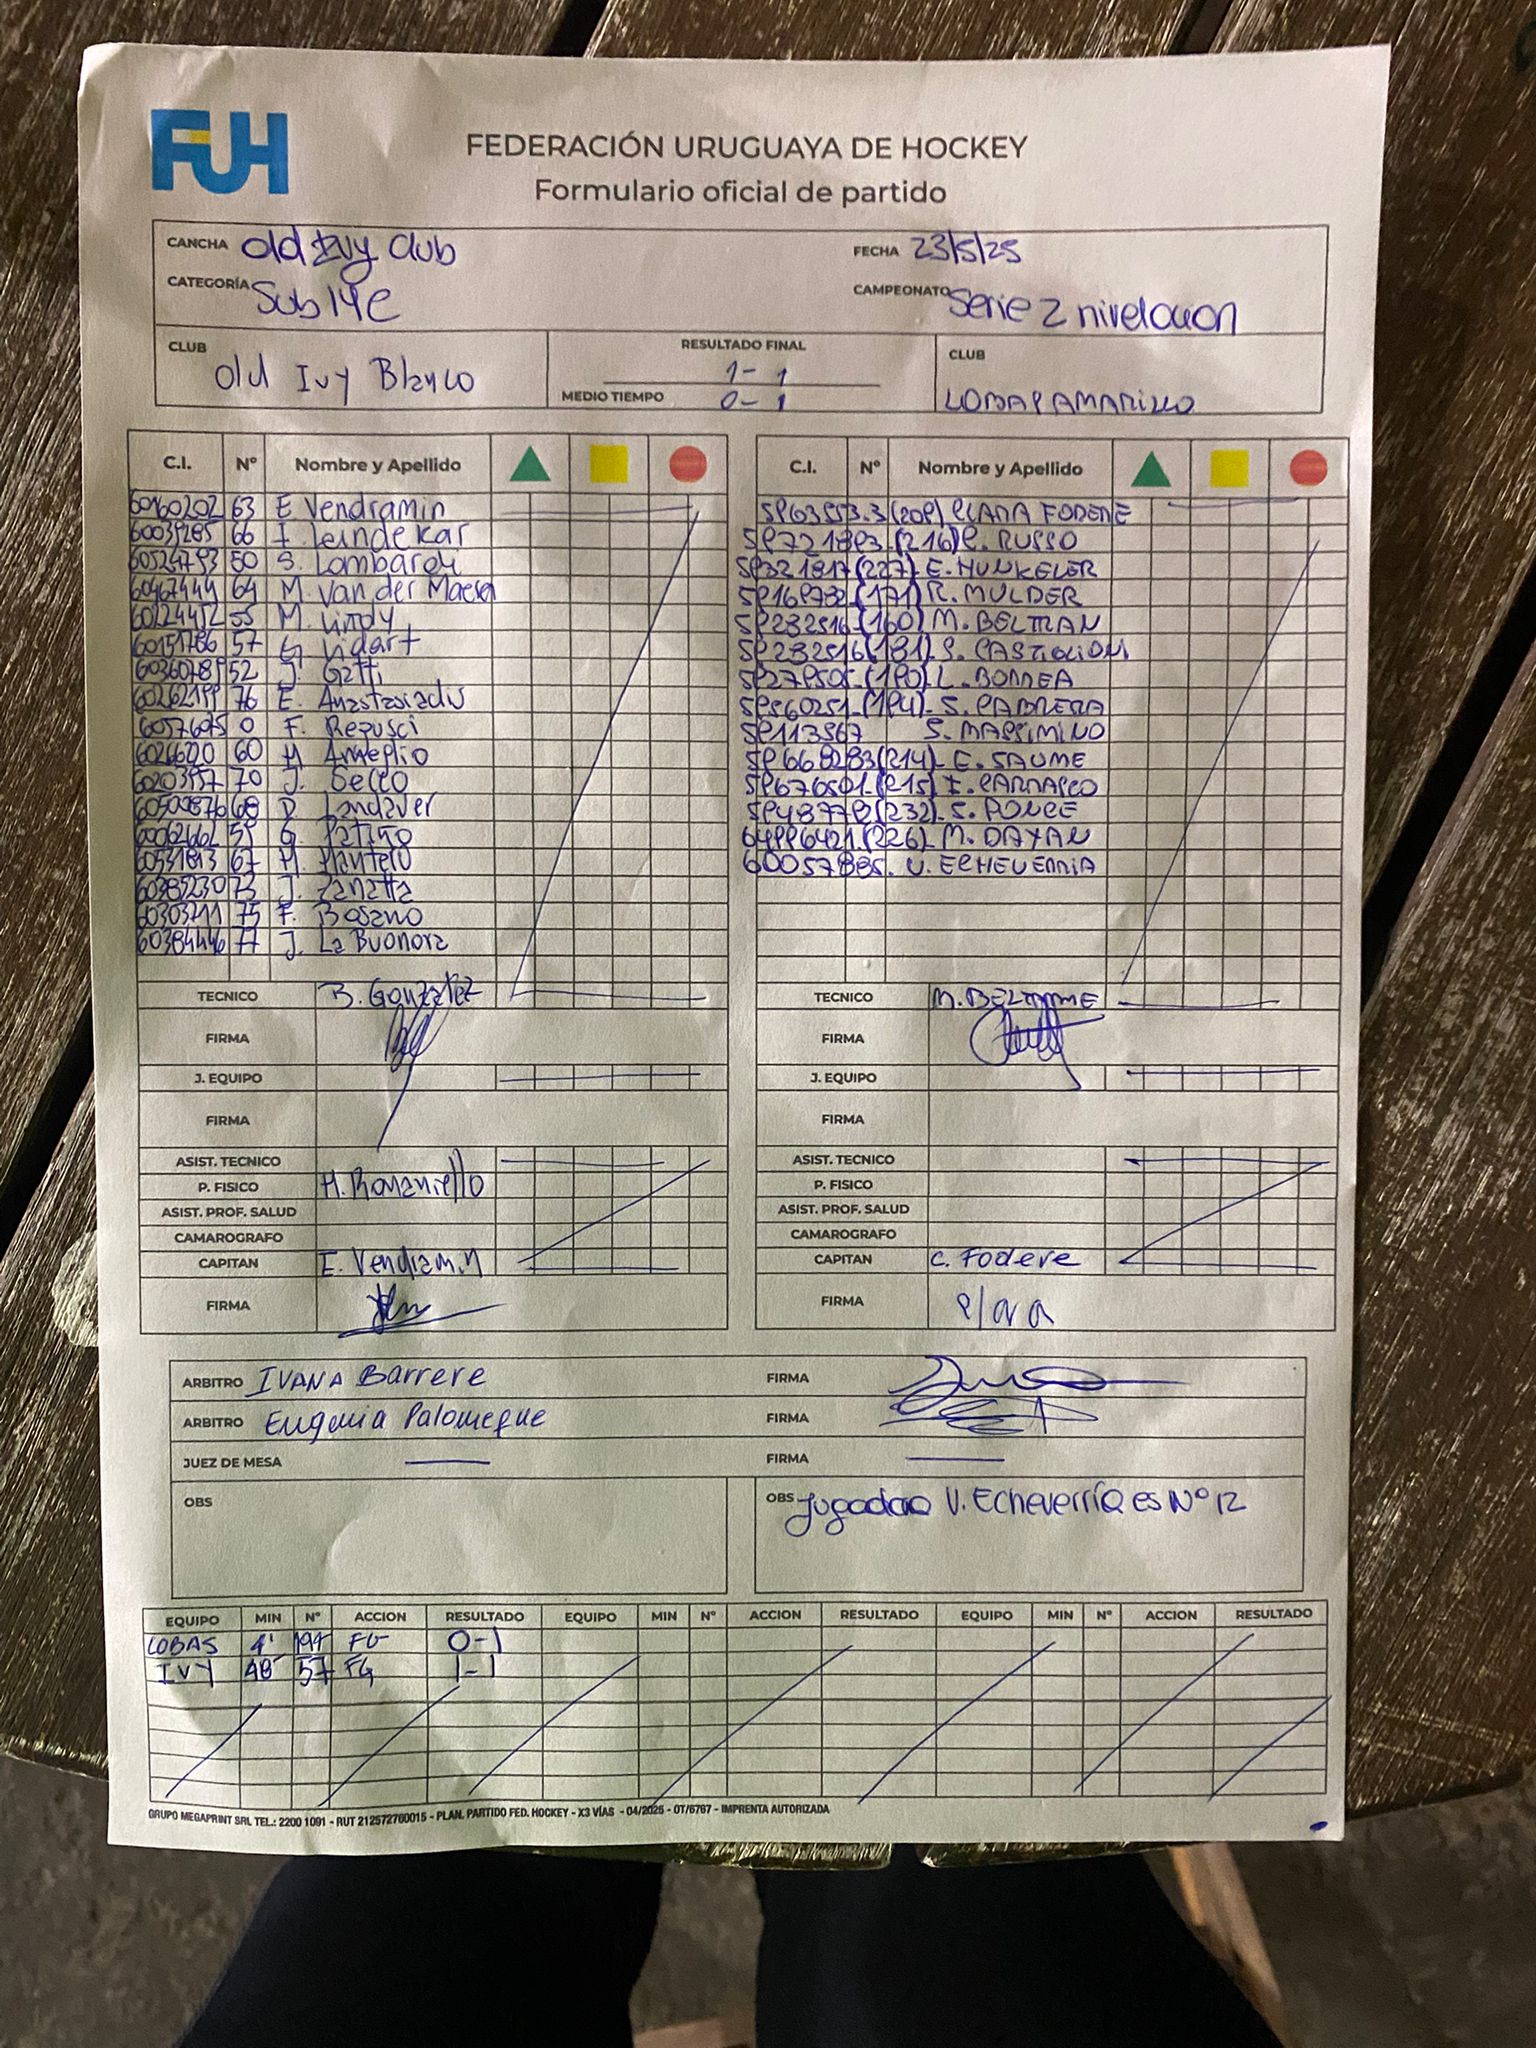 FUH
FEDERACIÓN URUGUAYA DE HOCKEY
Formulario oficial de partido
CANCHA Old Ivy Club FECHA 23/5/25
CATEGORÍA Sub14C CAMPEONATO Serie 2 nivelacion
CLUB RESULTADO FINAL CLUB
Old Ivy Blanco 1-1 LOBAS AMARILLO
MEDIO TIEMPO 0-1
C.I. Nº Nombre y Apellido C.I. Nº Nombre y Apellido
60160202 63 E Vendramin (209) CLARA FODERE
66 I. Leindekar (216) C. RUSSO
S. Lombardi (227) E. HUNKELER
64 M. van der Maesen (171) R. MULDER
55 M. Lindy (160) M. BELTRAN
57 G Vidart (181) S. CASTIGLIONI
52 J. Gatti (190) L. BORREA
76 E. Anastasiadis (194) S. PARRERA
0 F. Repusci S. MASSIMINO
60 M Ameglio (214) E. SAUME
70 J. Secco (215) F. CARRASCO
68 D. Landaver (232) S. PONCE
G. Patiño (226) M. DAYAN
67 M. Mantero 60057885. V. ECHEVERRIA
73 J. Zanatta
75 F. Bosano
60384446 77 J. La Buonora
TECNICO B. Gonzalez TECNICO M. BELTRAME
FIRMA FIRMA
J. EQUIPO J. EQUIPO
FIRMA FIRMA
ASIST. TECNICO ASIST. TECNICO
P. FISICO M. Romaniello P. FISICO
ASIST. PROF. SALUD ASIST. PROF. SALUD
CAMAROGRAFO CAMAROGRAFO
CAPITAN E. Vendramin CAPITAN C. Fodere
FIRMA FIRMA Clara
ARBITRO IVANA Barrere FIRMA
ARBITRO Eugenia Palomeque FIRMA
JUEZ DE MESA FIRMA
OBS OBS Jugadora V. Echeverría es Nº 12
EQUIPO MIN Nº ACCION RESULTADO EQUIPO MIN Nº ACCION RESULTADO EQUIPO MIN Nº ACCION RESULTADO
LOBAS 4' 194 FG 0-1
IVY 48' 57 FG 1-1
GRUPO MEGAPRINT SRL TEL.: 2200 1091 - RUT 212572760015 - PLAN. PARTIDO FED. HOCKEY - X3 VÍAS - 04/2025 - OT/6767 - IMPRENTA AUTORIZADA